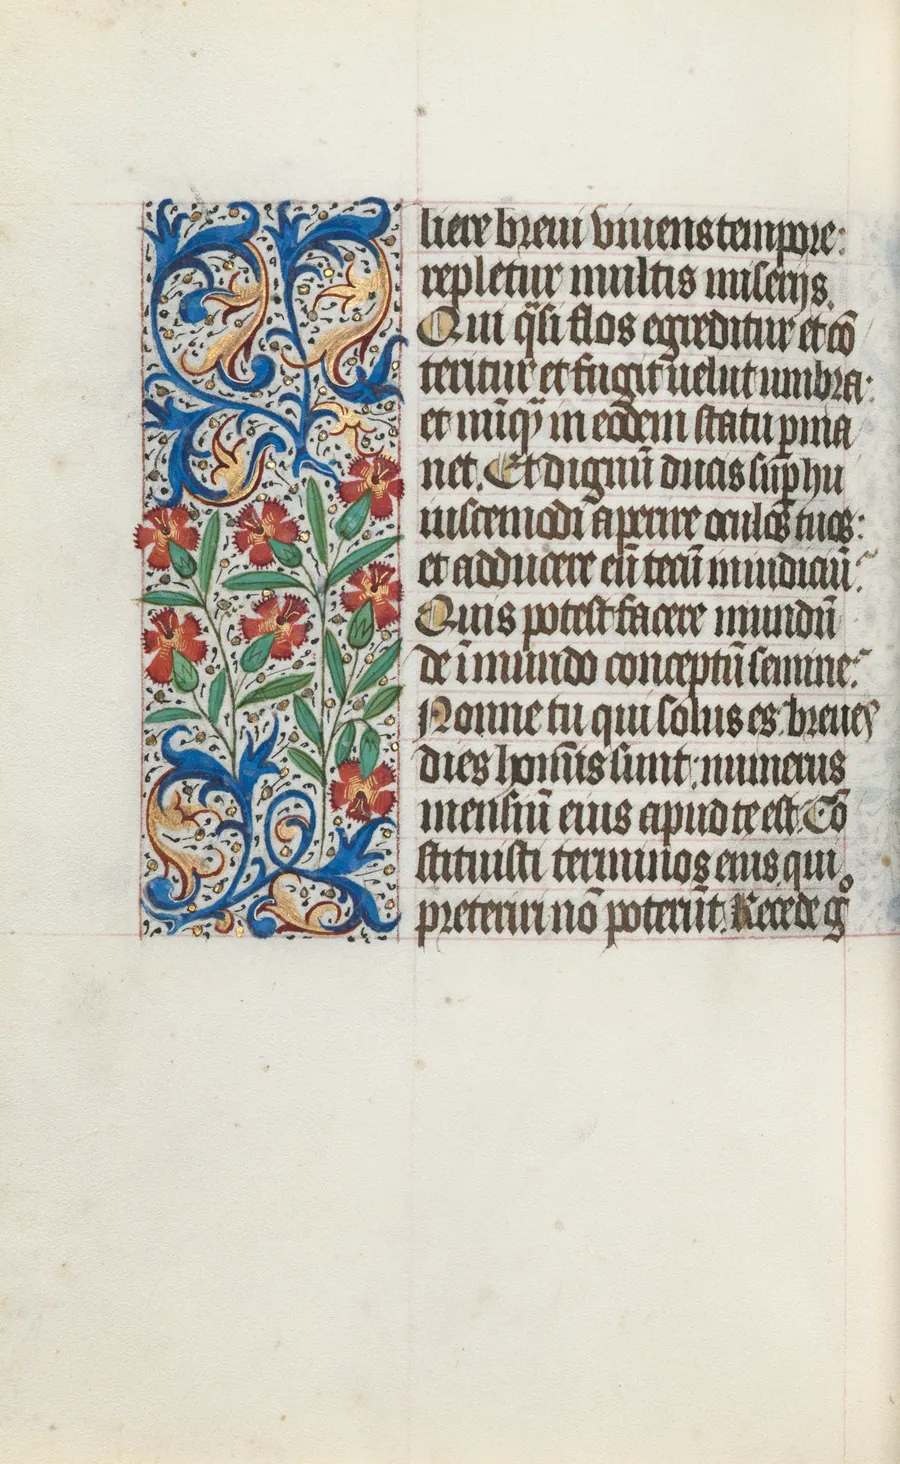 liere breui viuens tempore:
repletur multis miserijs.
Qui q̃si flos egreditur et cõ
teritur et fugit uelut umbra:
et nũq̃ in eodem statu ꝑma
net. Et dignũ ducis suꝑ hu
iuscemodi aperire oculos tuos:
et adducere eũ tecũ in iudiciũ:
Quis potest facere mundũ
de ĩmundo conceptũ semine:
Nonne tu qui solus es. breues
dies hoĩnis sunt: numerus
mensiũ eius apud te est. Cõ
stituisti terminos eius qui
preteriri nõ poterũt. Recede gͦ